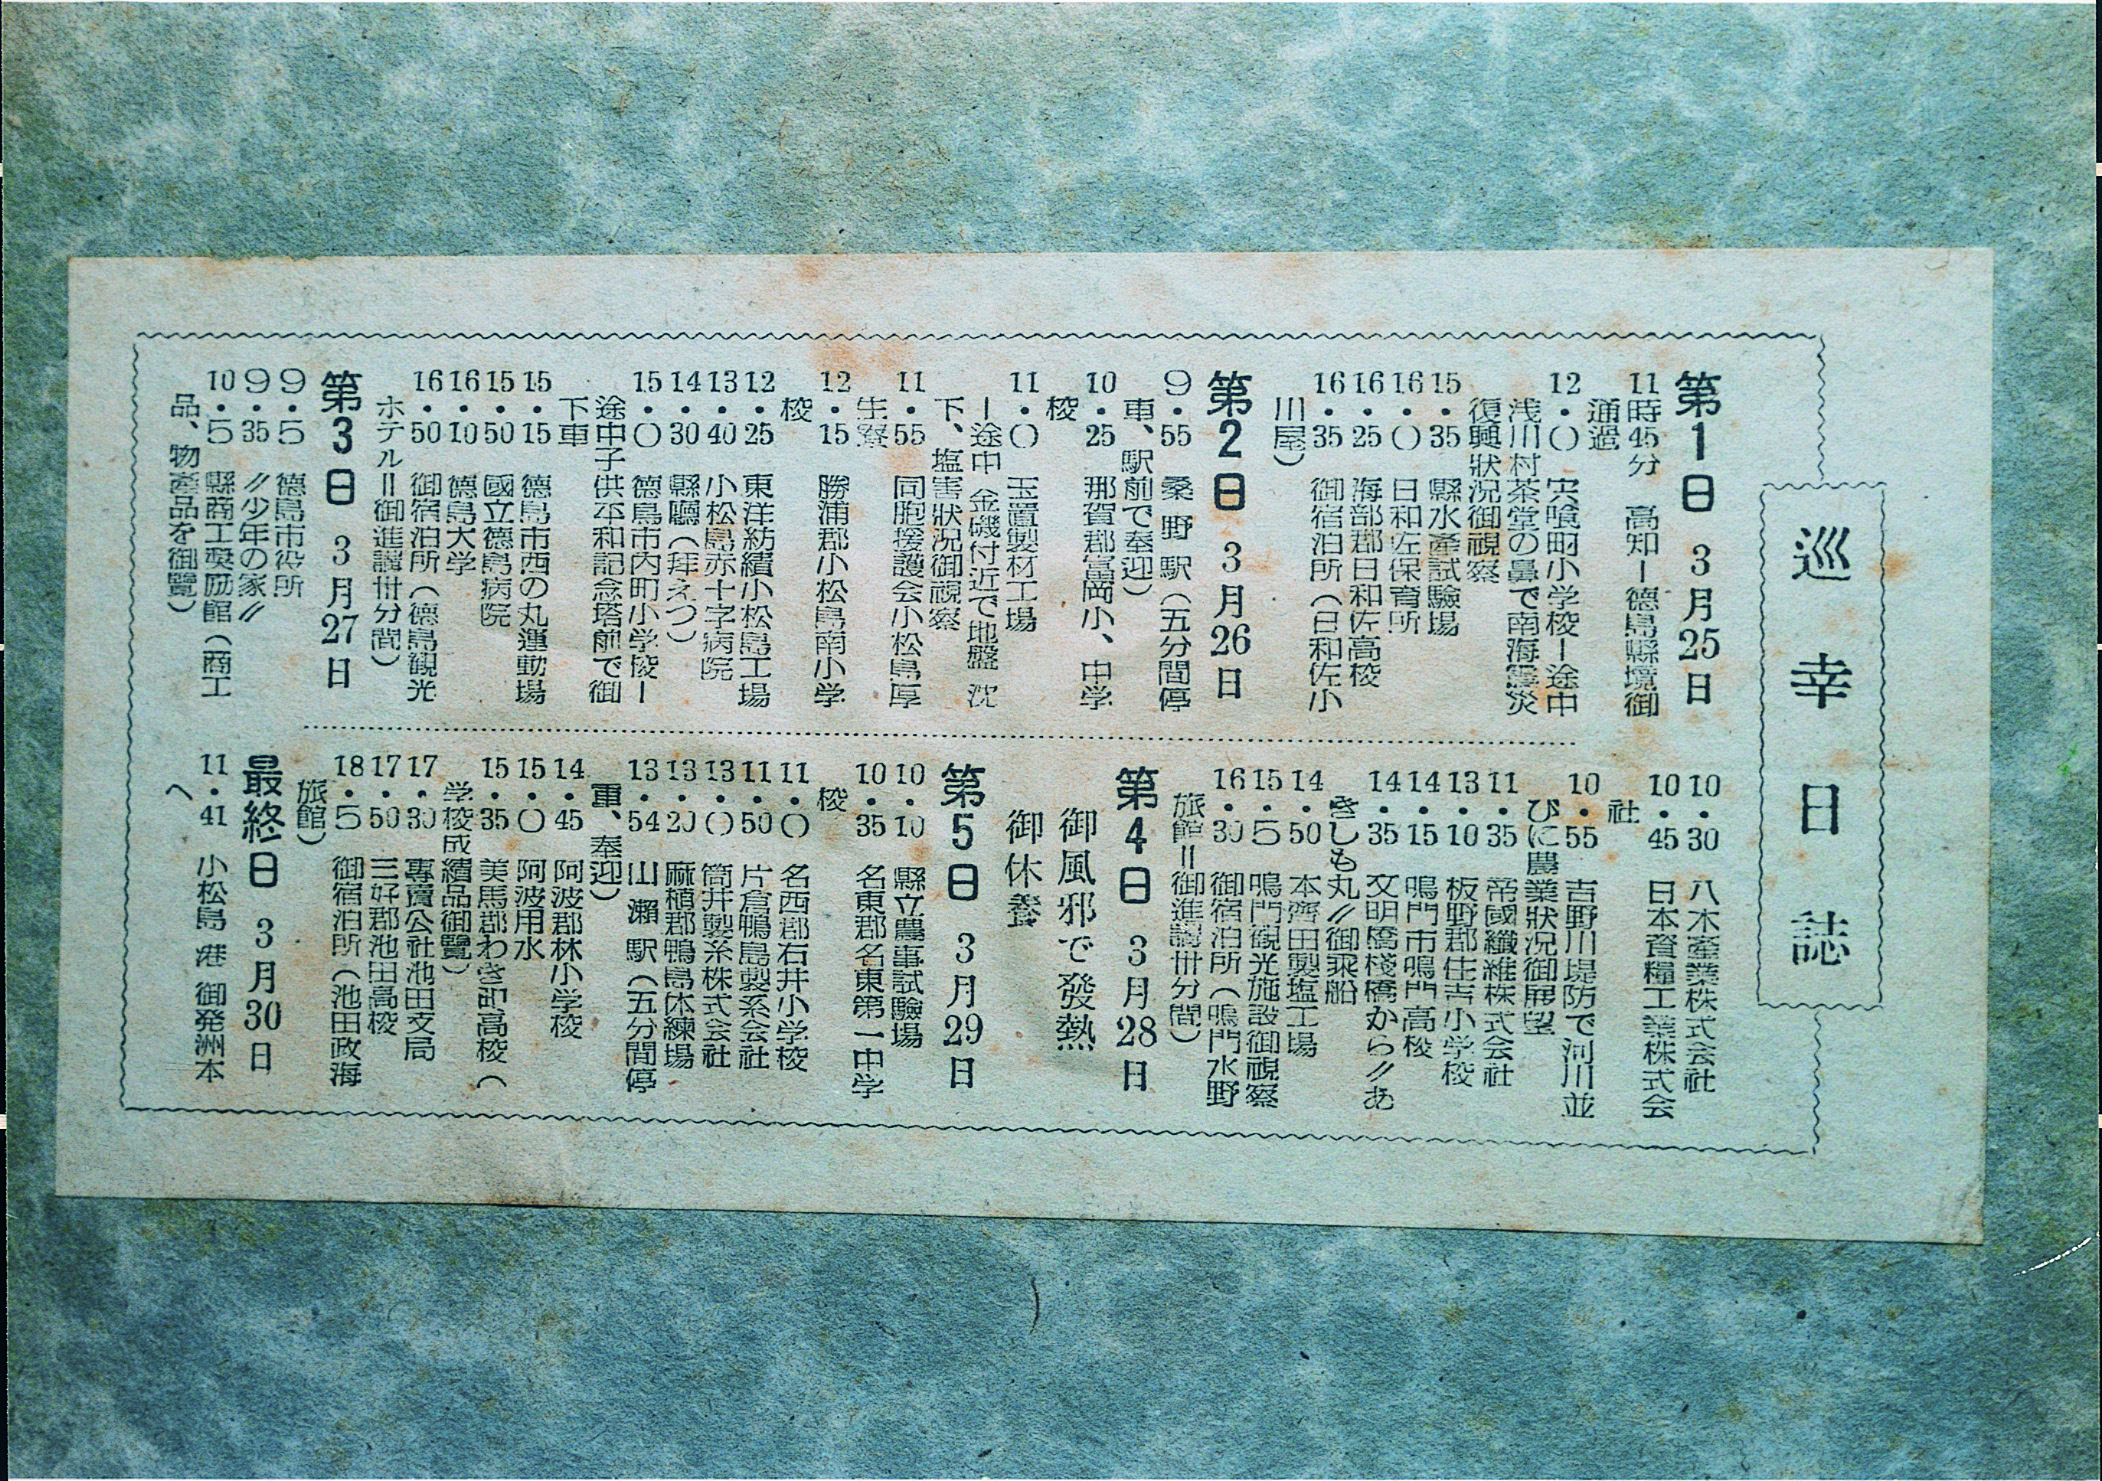 巡幸日誌
第1日 3月25日
11時45分 高知ー徳島縣境御
通過
12・〇 宍喰町小学校ー途中
浅川村茶堂の鼻で南海震災
復興狀況御視察
15・35 縣水產試驗場
16・〇 日和佐保育所
16・25 海部郡日和佐高校
16・35 御宿泊所(日和佐小
川屋)
第2日 3月26日
9・55 桑野駅(五分間停
車、駅前で奉迎)
10・25 那賀郡富岡小、中学
校
11・〇 玉置製材工場
ー途中 金磯付近で地盤沈
下、塩害狀況御視察
11・55 同胞援護会小松島厚
生寮
12・15 勝浦郡小松島南小学
校
12・25 東洋紡績小松島工場
13・40 小松島赤十字病院
14・30 縣廳(拜えつ)
15・〇 徳島市内町小学校ー
途中子供平和記念塔前で御
下車
15・15 徳島市西の丸運動場
15・50 國立徳島病院
16・10 徳島大学
16・50 御宿泊所(徳島観光
ホテル=御進講卅分間)
第3日 3月27日
9・5 徳島市役所
9・35 〃少年の家〃
10・5 縣商工奨励館(商工
品、物產品を御覽)
10・30 八木産業株式会社
10・45 日本資糧工業株式会
社
10・55 吉野川堤防で河川並
びに農業狀況御展望
11・35 帝國纖維株式会社
13・10 板野郡住吉小学校
14・15 鳴門市鳴門高校
14・35 文明橋棧橋から〃あ
きしも丸〃御乘船
14・50 本齊田製塩工場
15・5 鳴門観光施設御視察
16・30 御宿泊所(鳴門水野
旅館=御進講卅分間)
第4日 3月28日
御風邪で發熱
御休養
第5日 3月29日
10・10 縣立農事試驗場
10・35 名東郡名東第一中学
校
11・〇 名西郡石井小学校
11・50 片倉鴨島製糸会社
13・〇 筒井製糸株式会社
13・20 麻植郡鴨島休練場
13・54 山瀬駅(五分間停
車、奉迎)
14・45 阿波郡林小学校
15・〇 阿波用水
15・35 美馬郡わき町高校(
学校成績品御覽)
17・30 專賣公社池田支局
17・50 三好郡池田高校
18・5 御宿泊所(池田政海
旅館)
最終日 3月30日
11・41 小松島港御発洲本
へ